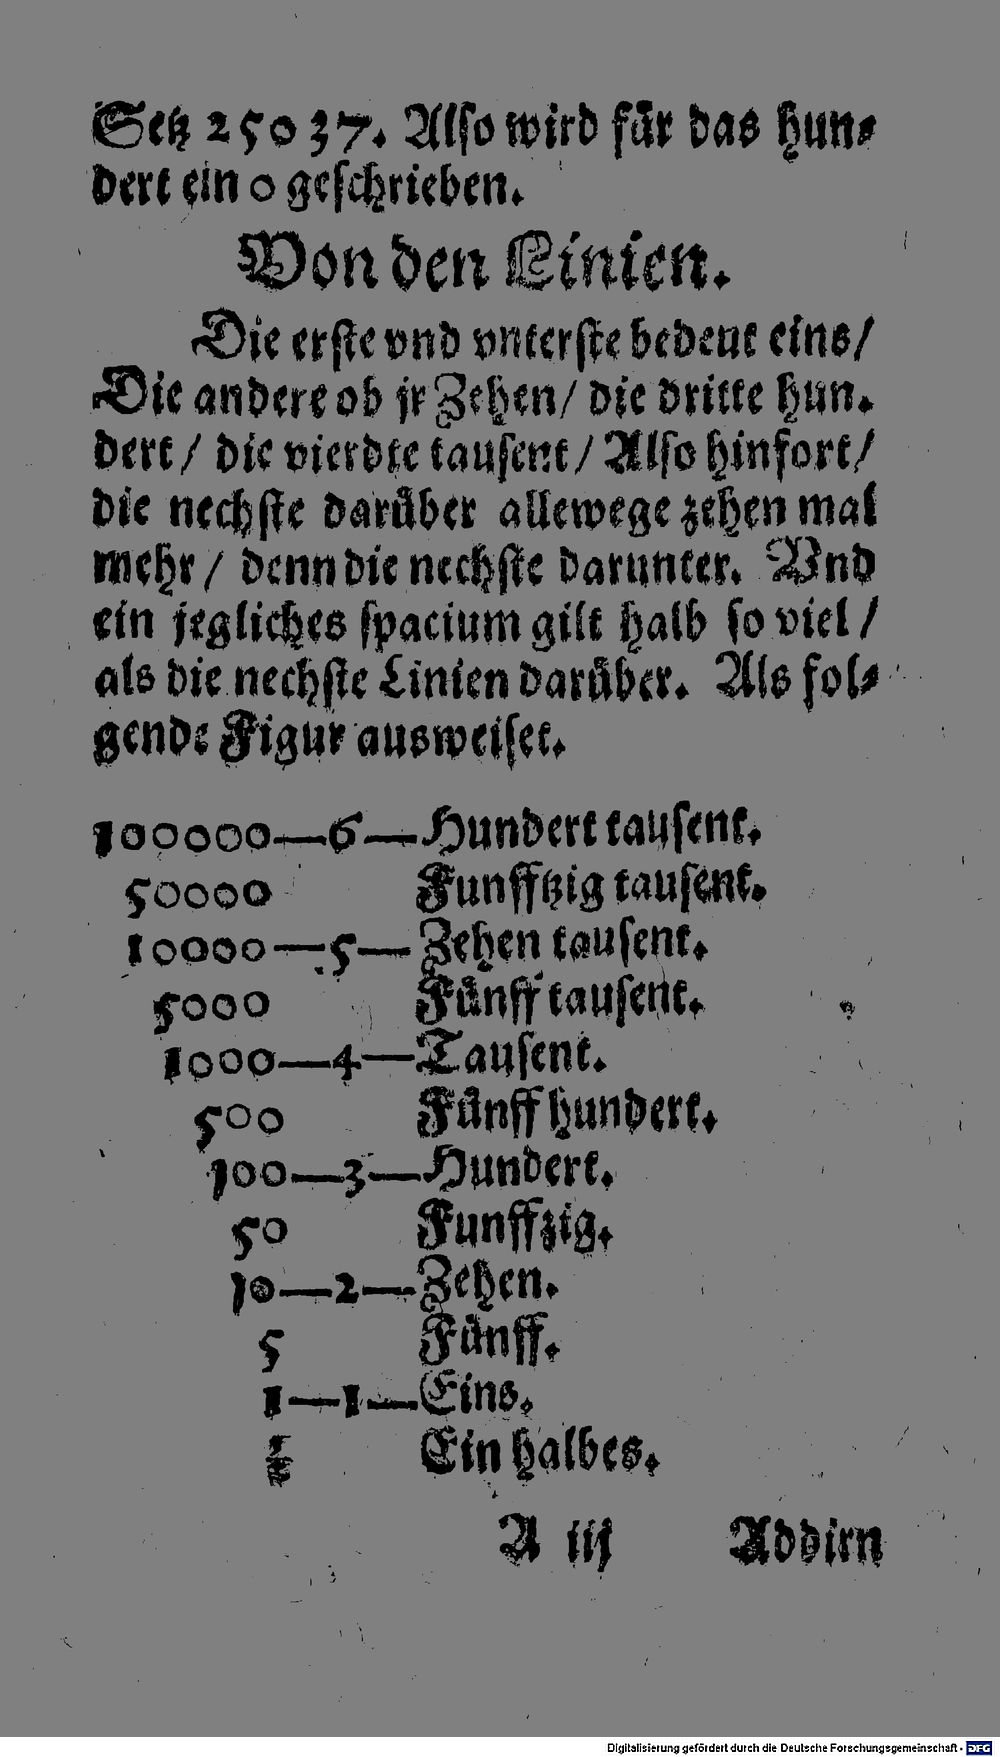 Setz 25037. Also wird für das hun⸗
dert ein 0 geschrieben.
Von den Linien.
Die erste vnd vnterste bedeut eins/
Die andere ob jr Zehen/ die dritte hun.
dert/ die vierdte tausent/ Also hinfort/
die nechste darüber allewege zehen mal
mehr/ denn die nechste darunter. Vnd
ein jegliches spacium gilt halb so viel/
als die nechste Linien darüber. Als fol⸗
gende Figur ausweiset.
100000—6—Hundert tausent.
50000 Funfftzig tausent.
10000—5—Zehen tausent.
5000 Fünff tausent.
1000—4—Tausent.
500 Fünff hundert.
100—3—Hundert.
50 Funffzig.
10—2—Zehen.
5 Fünff.
1—1—Eins.
½ Ein halbes.
A iij Addirn
Digitalisierung gefördert durch die Deutsche Forschungsgemeinschaft - DFG